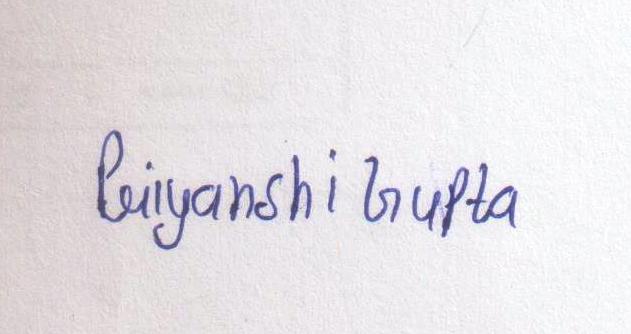 Priyanshi Gupta